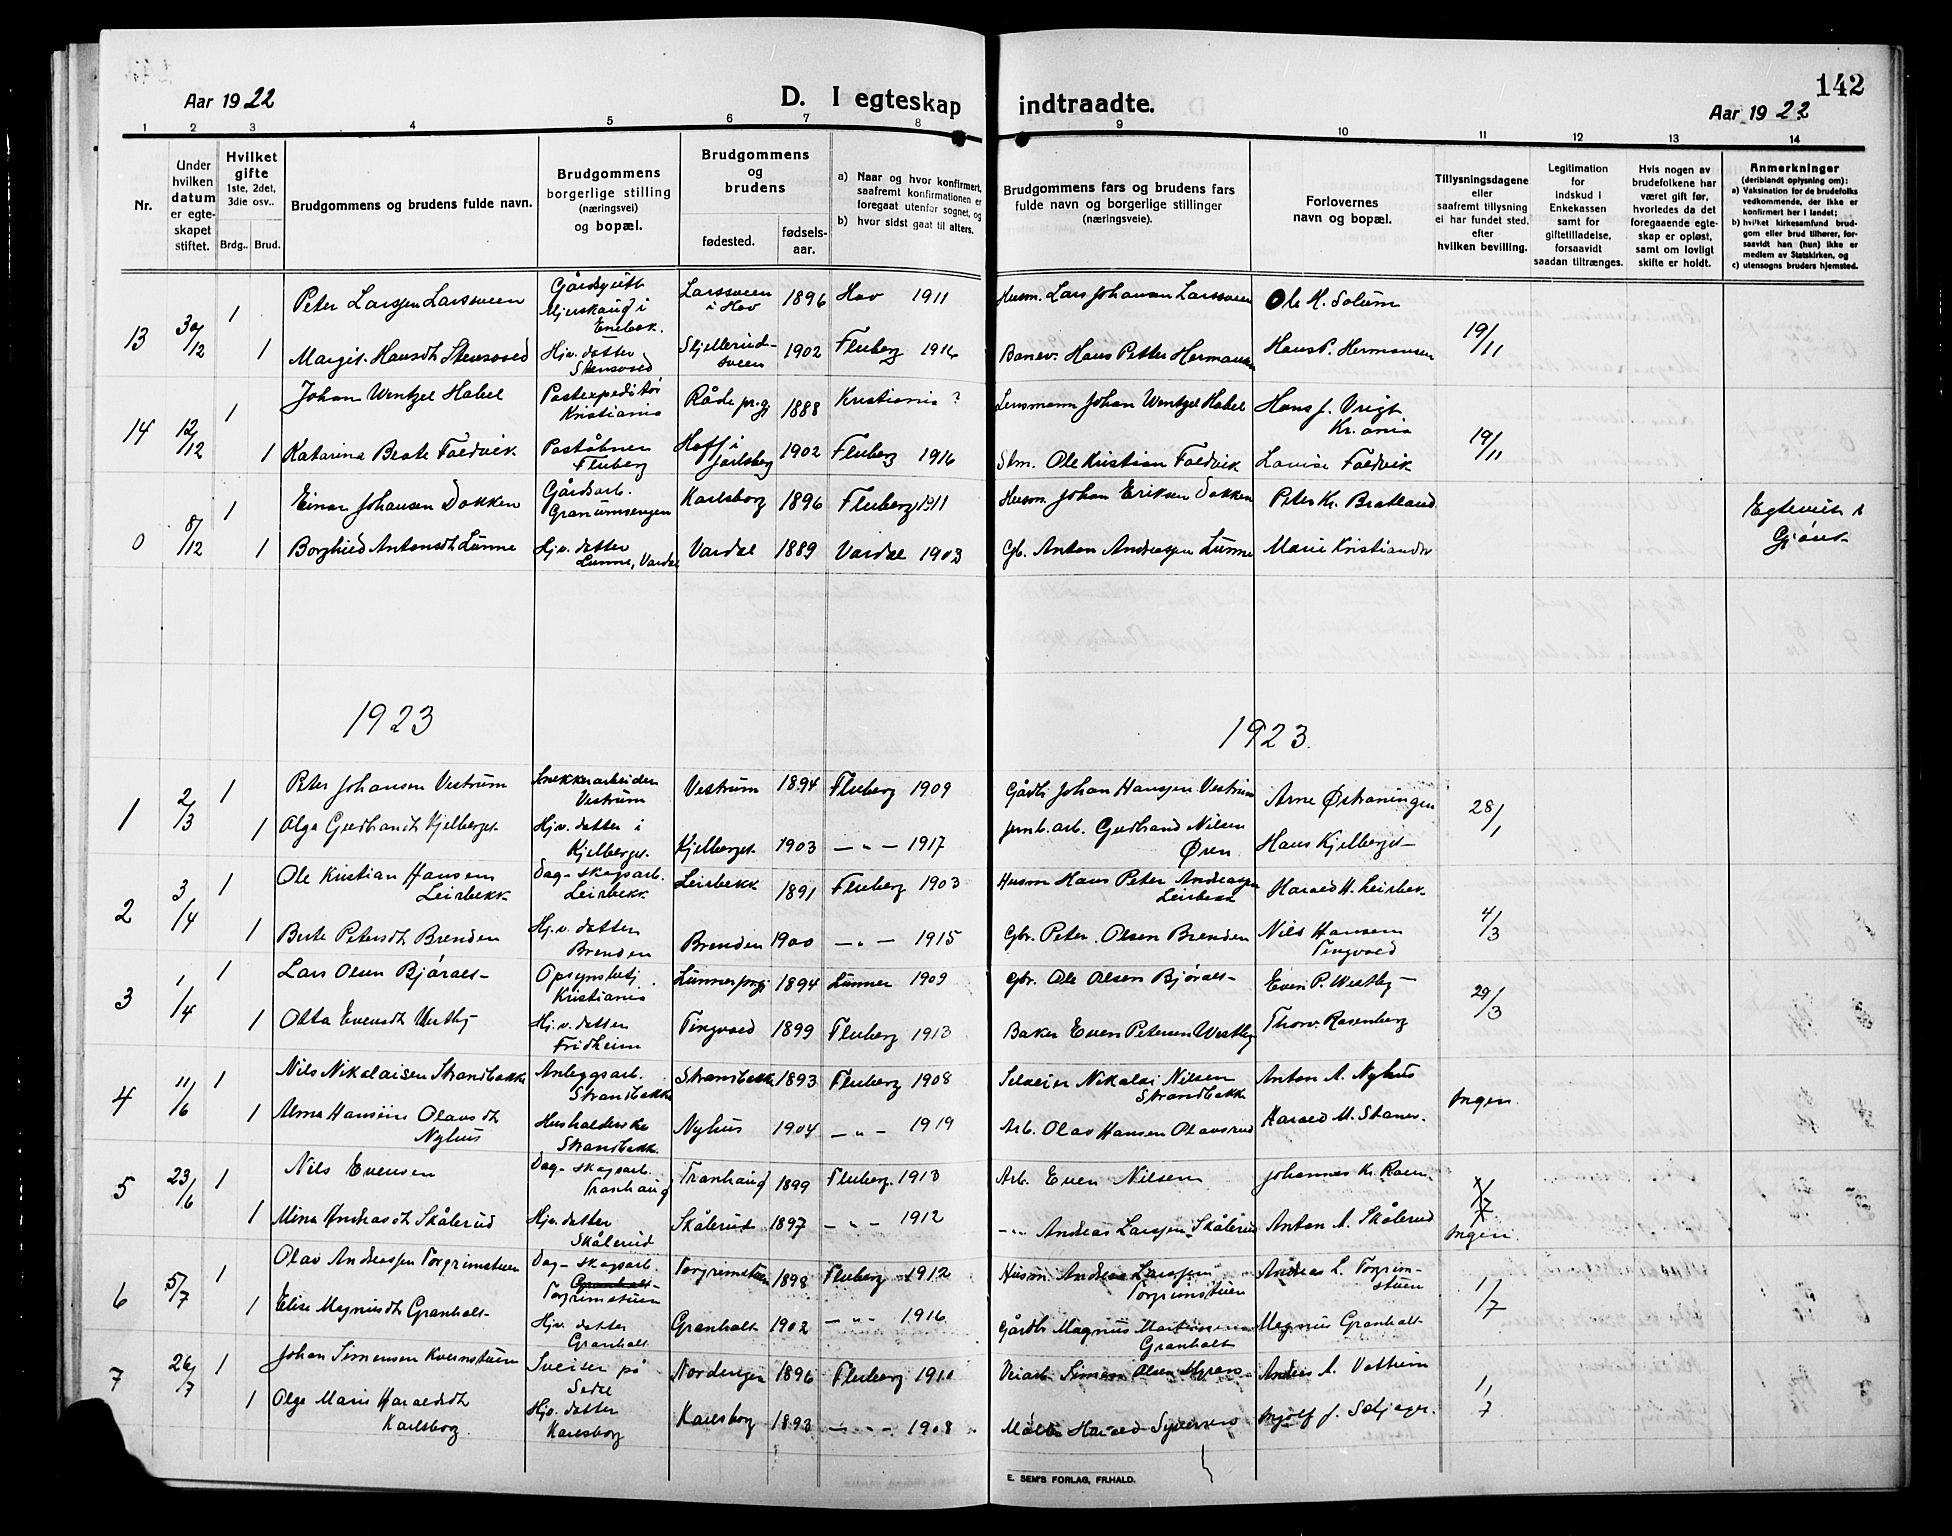 142
Aar 1922
D. I egteskap indtraadte.
Aar 1922
1 2 3 4 5 6 7 8 9 10 11 12 13 14
Nr.
Under hvilken datum er egteskapet stiftet.
Hvilket gifte 1ste, 2det, 3die osv..
Brdg.. Brud.
Brudgommens og brudens fulde navn.
Brudgommens borgerlige stilling (næringsvei) og bopæl.
Brudgommens og brudens
fødested.
fødselsaar.
a) Naar og hvor konfirmert, saafremt konfirmationen er foregaat utenfor sognet, og
b) hvor sidst gaat til alters.
Brudgommens fars og brudens fars fulde navn og borgerlige stillinger (næringsveie).
Forlovernes navn og bopæl.
Tillysningsdagene eller saafremt tillysning ei har fundet sted, efter hvilken bevilling.
Legitimation for indskud i Enkekassen samt for giftetilladelse, forsaavidt saadan tiltrænges.
Hvis nogen av brudefolkene har været gift før, hvorledes da det foregaaende egteskap er opløst, samt om lovligt skifte er holdt.
Anmerkninger (deriblandt oplysning om):
a) Vaksination for de brudefolks vedkommende, der ikke er konfirmert her i landet;
b) hvilket kirkesamfund brudgom eller brud tilhører, forsaavidt han (hun) ikke er medlem av Statskirken, og
c) utensogns bruders hjemsted.
13 30/12 1 Peter Larssen Larssveen Gårdsgutt Mjerskaug i Enebak. Larssveen i Hov 1896 Hov 1911 Husm. Lars Johansen Larssveen Ole H. Solum 19/11
1 Margit Hansdt. Stensved Hjv. datter Stensved Skjellerudsveen 1902 Fluberg 1916 Banev. Hans Petter Hermansen Hans P. Hermansen
14 12/12 1 Johan Wentzel Habel Postexpeditør Kristiania Råde pr.gj 1888 Kristiania ? Lensmann Johan Wentzel Habel Hans J. Vrigt Kr.ania 19/11
1 Katarina Beate Foldvik Poståbner Fluberg Hoff i Jarlsberg 1902 Fluberg 1916 Slm. Ole Kristian Foldvik Lovise Foldvik
0 8/12 1 Einar Johansen Dokken Gårdsarb. Granumsengen Karlsborg 1896 Fluberg 1911 Husm. Johan Eriksen Dokken Peter Kr. Bratland Egteviet i Gjøvik
1 Borghild Antonsdt. Lunne Hjv. datter Lunne, Vardal Vardal 1889 Vardal 1903 Gb. Anton Andreassen Lunne Marie Kristiansdt
1923
1923.
1 2/3 1 Peter Johansen Vestrum Snekkerarbeider Vestrum Vestrum 1894 Fluberg 1909 Gårdbr Johan Hanssen Vestrum Arne Østraningen 28/1
1 Olga Gudbrandt. Kjelberget Hjv. datter i Kjelberget Kjelberget 1903 — " — 1917 Jernb.arb. Gudbrand Nilsen Øren Hans Kjelberget
2 3/4 1 Ole Kristian Hansen Leirbekk Dag- skogsarb. Leirbekk Leirbekk 1891 Fluberg 1903 Husm Hans Peter Andreassen Leirbekk Harald H. Leirbek 4/3
1 Berte Petersdt. Brenden Hj.v. datter Brenden Brenden 1900 — " — 1915 Gbr. Peter Olsen Brenden Nils Hansen Tingvold
3 1/4 1 Lars Olsen Bjøralt Opsynsbetj. Kristiania Lunner prgj 1894 Lunner 1909 Gbr. Ole Olsen Bjøralt Even P. Westby 29/3
1 Otta Evensdt. Westby Hj.v. datter Fridheim Tingvold 1899 Fluberg 1913 Baker Even Petersen Westby Thorv. Rosenberg
4 11/6 1 Nils Nikolaisen Strandbakke Anleggsarb. Strandbakke Strandbakke 1893 Fluberg 1908 Selveier Nikolai Nilsen Strandbakke Anton A. Nyhus Ingen.
1 Alma Hansine Olavsdt Nyhus Husholderske Strandbakk. Nyhus 1904 — " — 1919 Arb. Olav Hansen Olavsrud Harald M.
5 23/6 1 Nils Evensen Dag- skogsarb. Tranhaug Tranhaug 1899 Fluberg. 1913 Arb. Even Nilsen Johannes Kr. Roen 1/7 Ingen.
1 Mina Andreasdt. Skålerud Hjv. datter Skålerud Skålerud 1897 — " — 1912 — " — Andreas Larssen Skålerud Anton A. Skålerud
6 5/7 1 Olav Andreassen Torgrimstuen Dag- skogsarb. Granholt Torgrimstuen Torgrimstuen 1898 Fluberg 1912 Husm. Andreas Larssen Torgrimstuen Andreas L. Torgrimstuen 1/7
1 Elise Magnusdt. Granholt Hjv. datter Granholt Granholt 1902 — " — 1916 Gårdbr Magnus Martinsen Granholt Magnus Granholt
7 26/7 1 Johan Simensen Kvernstuen Sveiser på Nordengen 1896 Fluberg 1910 Veiarb. Simen Olsen Anders A. Vestrum 1/7
1 Olga Marie Haraldsdt Karlsborg. Hjv. datter Karlsborg Karlsborg 1893 — " — 1908 Harald Ingolf J.
E. SEM'S FORLAG, FR.HALD.